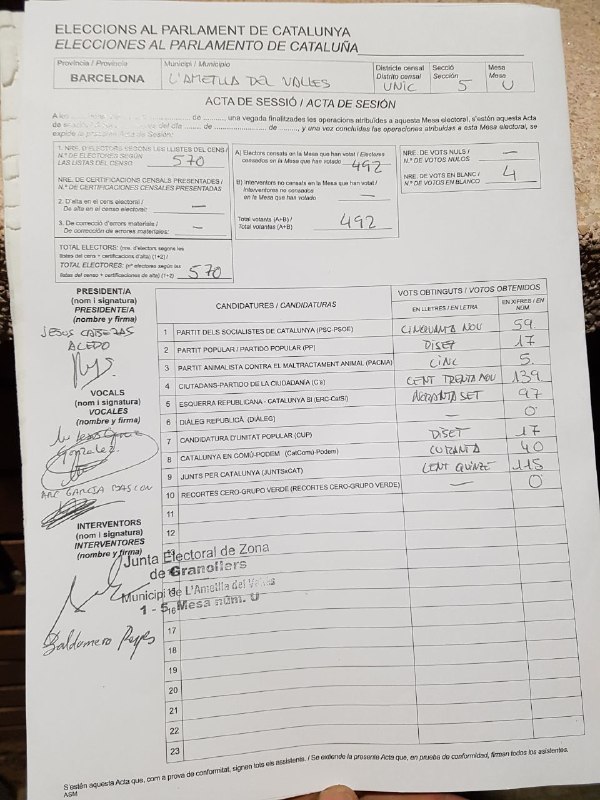 ELECCIONS AL PARLAMENT DE CATALUNYA
ELECCIONES AL PARLAMENTO DE CATALUÑA
Província / Provincia
BARCELONA
Municipi / Municipio
L'AMETLLA DEL VALLES
Districte censal
Distrito censal
UNIC
Secció
Sección
5
Mesa
Mesa
U
ACTA DE SESSIÓ / ACTA DE SESIÓN
una vegada finalitzades les operacions atribuïdes a aquesta Mesa electoral, s'estén aquesta Acta
y una vez concluidas las operaciones atribuidas a esta Mesa electoral, se
expide la presente Acta de Sesión:
1. NRE. D'ELECTORS SEGONS LES LLISTES DEL CENS /
N.º DE ELECTORES SEGÚN
LAS LISTAS DEL CENSO
570
NRE. DE CERTIFICACIONS CENSALS PRESENTADES /
N.º DE CERTIFICACIONES CENSALES PRESENTADAS
2. D'alta en el cens electoral /
De alta en el censo electoral: —
3. De correcció d'errors materials /
De corrección de errores materiales: —
TOTAL ELECTORS: (nre. d'electors segons les
llistes del cens + certificacions d'alta) (1+2) /
TOTAL ELECTORES: (nº electores según las
listas del censo + certificaciones de alta) (1+2)
570
A) Electors censats en la Mesa que han votat / Electores
censados en la Mesa que han votado
492
B) Interventors no censats en la Mesa que han votat /
Interventores no censados
en la Mesa que han votado —
Total votants (A+B) /
Total votantes (A+B)
492
NRE. DE VOTS NULS /
N.º DE VOTOS NULOS —
NRE. DE VOTS EN BLANC /
N.º DE VOTOS EN BLANCO 4
PRESIDENT/A
(nom i signatura)
PRESIDENTE/A
(nombre y firma)
JESUS
ACEDO
VOCALS
(nom i signatura)
VOCALES
(nombre y firma)
Gonzalez
GARCIA
INTERVENTORS
(nom i signatura)
INTERVENTORES
(nombre y firma)
Baldomero Reyes
CANDIDATURES / CANDIDATURAS
VOTS OBTINGUTS / VOTOS OBTENIDOS
EN LLETRES / EN LETRA
EN XIFRES / EN NÚM.
1 PARTIT DELS SOCIALISTES DE CATALUNYA (PSC-PSOE) CINQUANTA NOU 59
2 PARTIT POPULAR / PARTIDO POPULAR (PP) DISET 17
3 PARTIT ANIMALISTA CONTRA EL MALTRACTAMENT ANIMAL (PACMA) CINC 5
4 CIUTADANS-PARTIDO DE LA CIUDADANÍA (C's) CENT TRENTA NOU 139
5 ESQUERRA REPUBLICANA - CATALUNYA SÍ (ERC-CatSí) NORANTA SET 97
6 DIÀLEG REPUBLICÀ (DIÀLEG) — 0
7 CANDIDATURA D'UNITAT POPULAR (CUP) DISET 17
8 CATALUNYA EN COMÚ-PODEM (CatComú-Podem) CURANTA 40
9 JUNTS PER CATALUNYA (JUNTSxCAT) CENT QUINZE 115
10 RECORTES CERO-GRUPO VERDE (RECORTES CERO-GRUPO VERDE) — 0
11
12
13
Junta Electoral de Zona
de Granollers
Municipi de L'Ametlla del Vallès
1 - 5 Mesa núm. U
16
17
18
19
20
21
22
23
S'estén aquesta Acta que, com a prova de conformitat, signen tots els assistents. / Se extiende la presente Acta que, en prueba de conformidad, firman todos los asistentes.
ASM